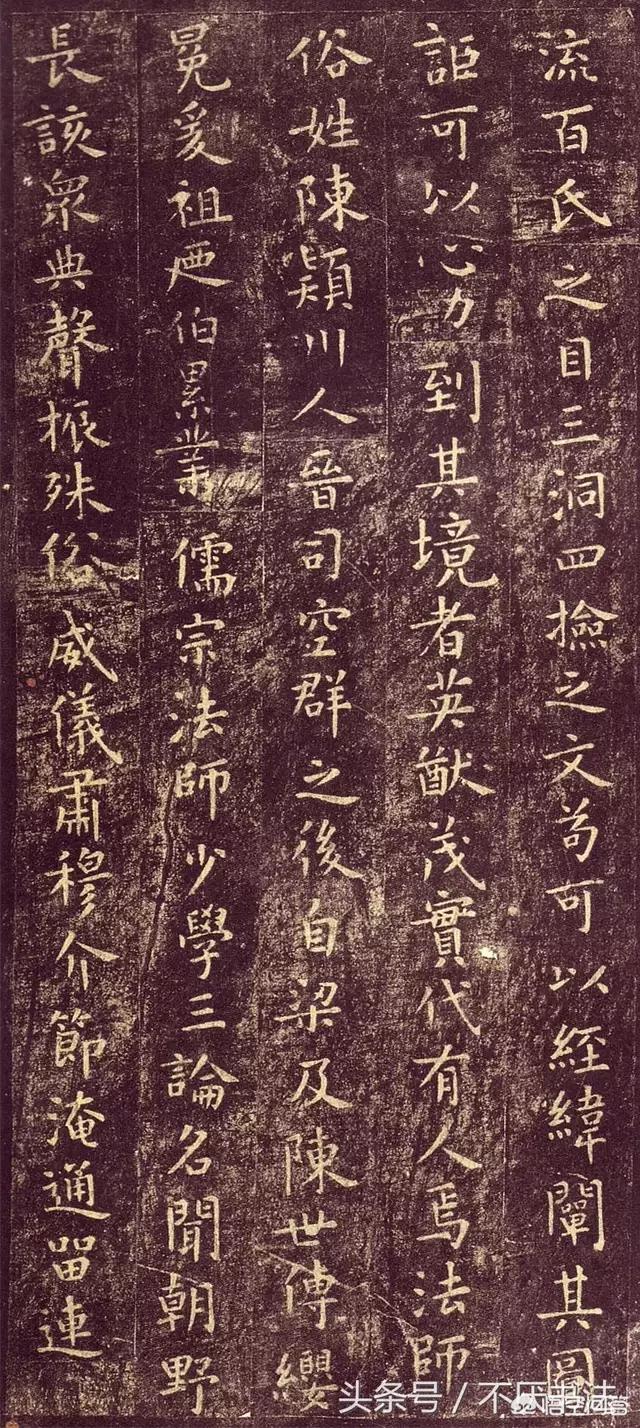 流百氏之目三洞四撿之文苟可以經緯闡其圖
詎可以心力到其境者英猷茂實代有人焉法師
俗姓陳潁川人晉司空群之後自梁及陳世傳纓
冕爰祖迺伯累業儒宗法師少學三論名聞朝野
長該衆典聲振殊俗威儀肅穆介節淹通留連
头条号 / 不厌书法
悟空问答